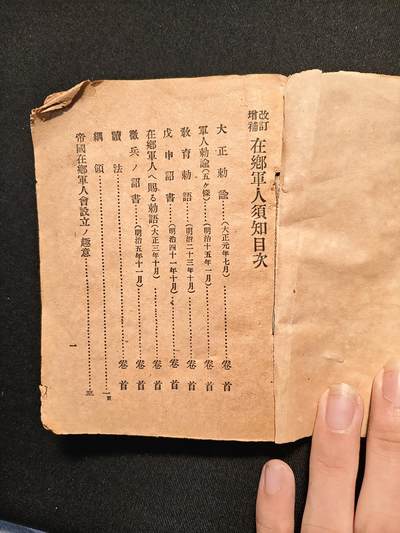 改訂増補 在鄕軍人須知目次
大正勅諭(大正元年七月)……卷首
軍人勅諭(五ケ條)(明治十五年一月)……卷首
敎育勅語(明治二十三年十月)……卷首
戊申詔書(明治四十一年十月)……卷首
在鄕軍人ヘ賜る勅語(大正三年十月)……卷首
徵兵ノ詔書(明治五年十一月)……卷首
讀法……卷首
綱領……一頁
帝國在鄕軍人會設立ノ趣意……
一